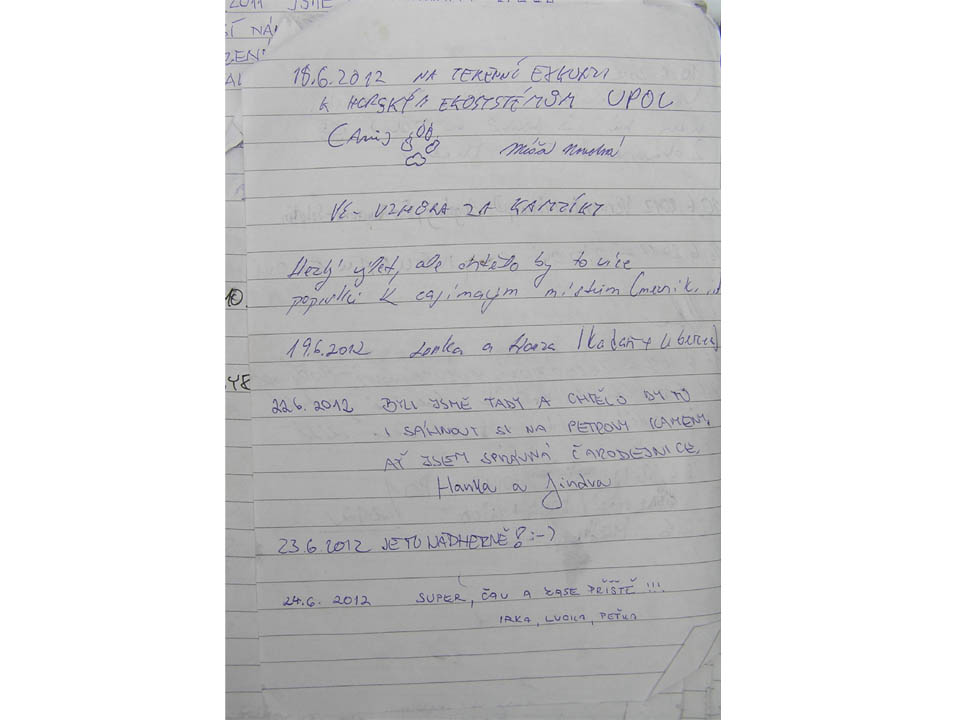 2011 JSME
18.6.2012 NA TERÉNNÍ EXKURZI
K HORSKÝM EKOSYSTÉMŮM UPOL
(Ani)
Míša
VE - VZHŮRA ZA KAMZÍKY
Hezký výlet, ale chtělo by to více
popisků k zajímavým místům (
19.6.2012 Lenka a Honza (Kadaň +
22.6.2012 BYLI JSME TADY A CHTĚLO BY TO
I SÁHNOUT SI NA PETROVY KAMENY,
AŤ JSEM SPRÁVNÁ ČARODEJNICE.
Hanka a Jindra
23.6.2012 JE TO NÁDHERNĚ! :-)
24.6. 2012 SUPER, ČAU A ZASE PŘÍŠTĚ !!!
IRKA, LUCKA, PEŤKA